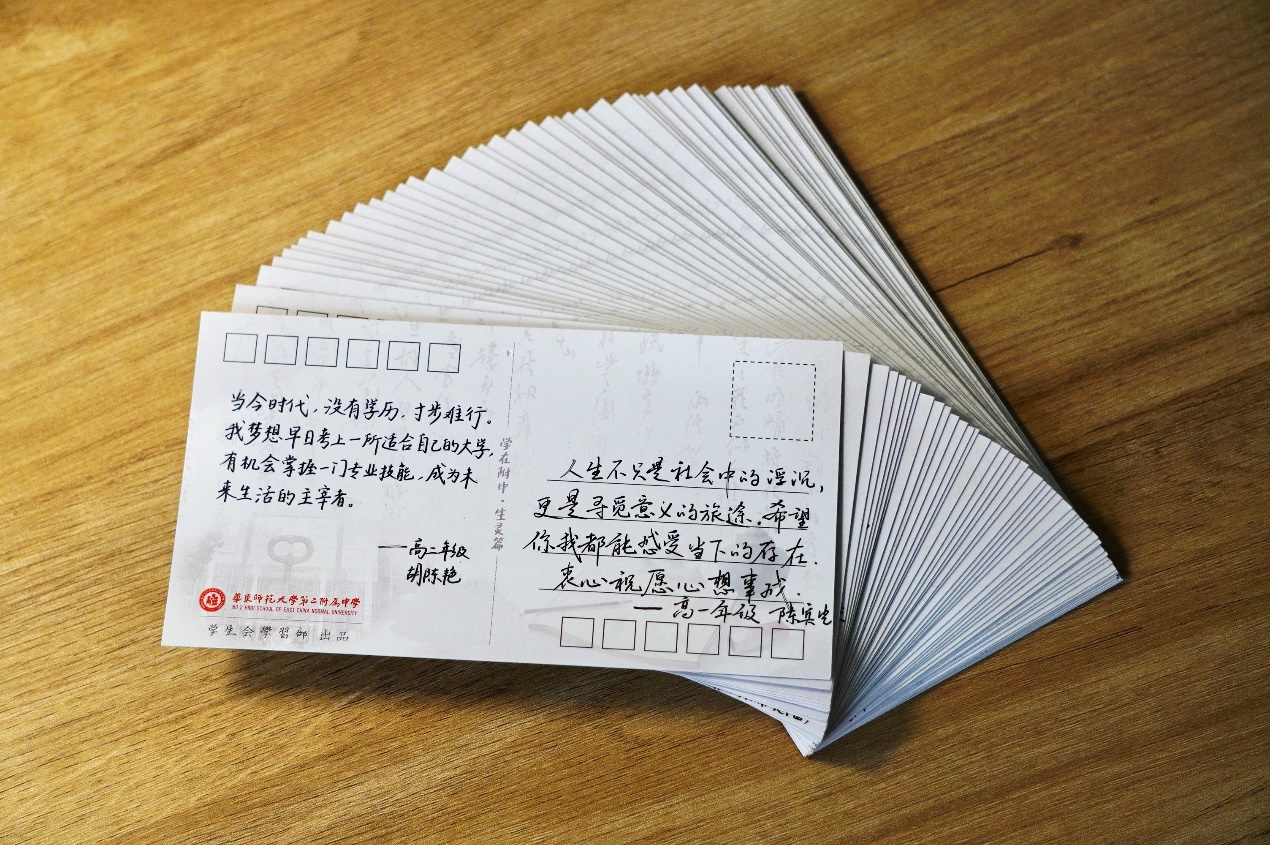 当今时代，没有学历，寸步难行。
我梦想早日考上一所适合自己的大学，
有机会掌握一门专业技能，成为未
来生活的主宰者。
——高二年级
胡陈艳
学在附中·生灵篇
人生不只是社会中的浮沉，
更是寻觅意义的旅途。希望
你我都能感受当下的存在.
衷心祝愿心想事成.
——高一年级 陈宾
華東師范大學第二附属中學
NO.2 HIGH SCHOOL OF EAST CHINA NORMAL UNIVERSITY
学生会學習部出品